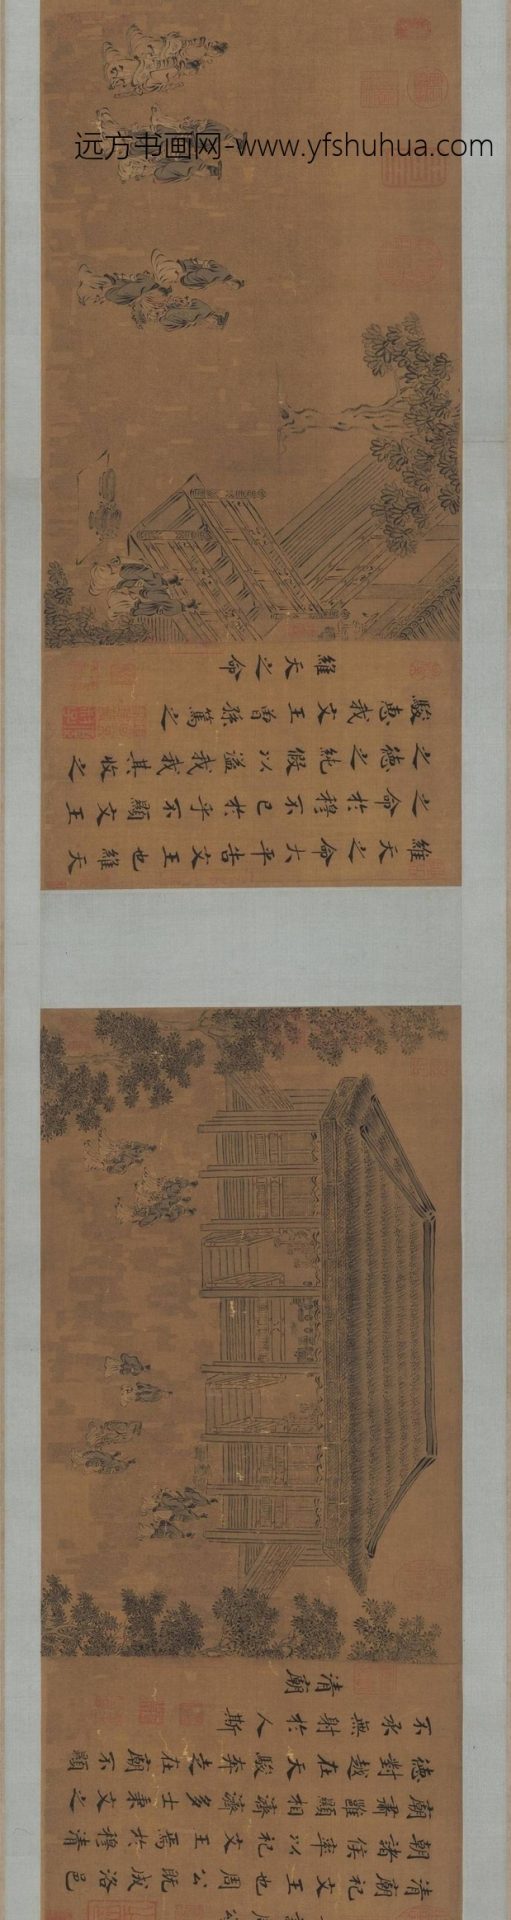 远方书画网-www.yfshuhua.com
清廟祀文王也周公既成洛邑
朝諸侯率以祀文王焉於穆清
廟肅雝顯相濟濟多士秉文之
德對越在天駿奔走在廟不顯
不承無射於人斯
清廟
維天之命大平告文王也維天
之命於穆不已於乎不顯文王
之德之純假以溢我我其收之
駿惠我文王曾孫篤之
維天之命